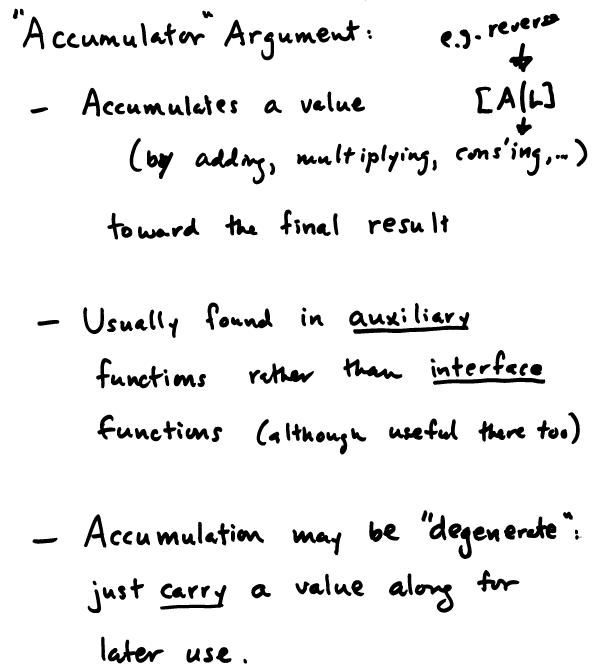 "Accumulator" Argument:
e.g. reverse
- Accumulates a value
[A|L]
(by adding, multiplying, cons'ing,...)
toward the final result
- Usually found in auxiliary
functions rather than interface
functions (although useful there too)
- Accumulation may be "degenerate":
just carry a value along for
later use.